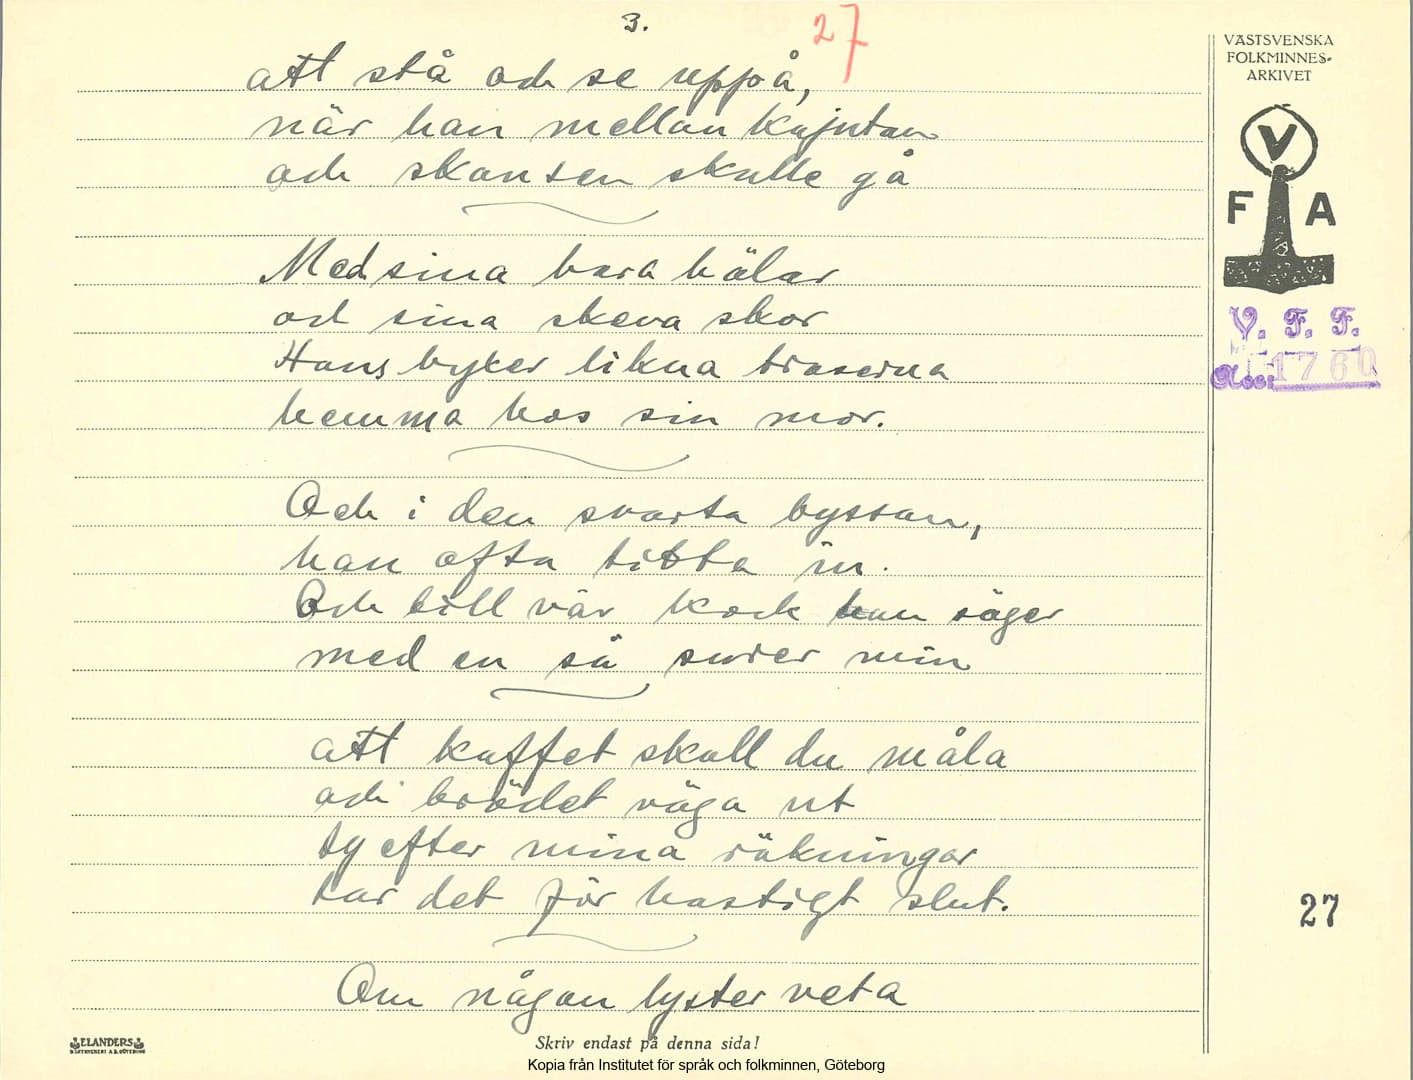 3.
27
att stå och se uppå,
när han mellan kajutan
och skansen skulle gå
Med sina bara hälar
och sina skeva skor
Hans byxer likna traserna
hemma hos sin mor.
Och i den svarta byssan,
han ofta titta in.
Och till vår kock han säger
med en så surer min
att kaffet skall du måla
och brödet väga ut
ty efter mina räkningar
tar det för hastigt slut.
Om någon lyster veta
VÄSTSVENSKA
FOLKMINNES-
ARKIVET
V
F A
V. F. F.
Acc: 1760
27
ELANDERS
BOKTRYCKERI A.B. GÖTEBORG
Skriv endast på denna sida!
Kopia från Institutet för språk och folkminnen, Göteborg